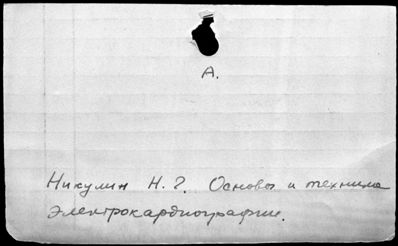 А.
Никулин Н. Г. Основы и техника
электрокардиографии.